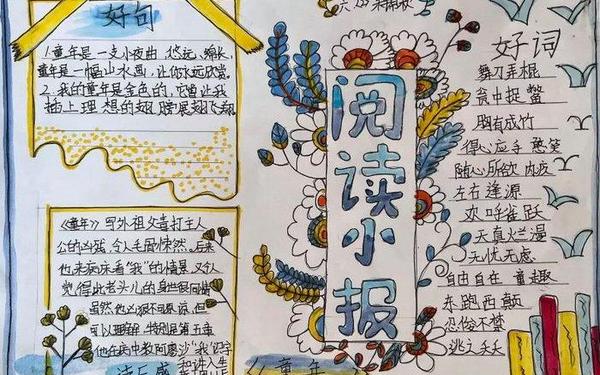 好句
1.童年是一支小夜曲,悠远、绵长,
童年是一幅山水画,让你永远欣赏。
2.我的童年是金色的,它曾让我
插上理想的翅膀展翅飞翔
《童年》写外祖父毒打主人
公的凶残,令人毛骨悚然,后来
他来病床看"我"的情景,又令人
觉得此老头儿的身世很同情
虽然他凶狠不可原谅,但
可以理解,特别是第五章
他在病中教阿廖沙"我"识字
和讲人生
读后感
阅读小报
《童年
六
好词
舞刀弄棍
瓮中捉鳖
胸有成竹
得心应手 憨笑
随心所欲 内疚
左右逢源
欢呼雀跃
天真烂漫
无忧无虑
自由自在 童趣
东跑西颠
忍俊不禁
逃之夭夭